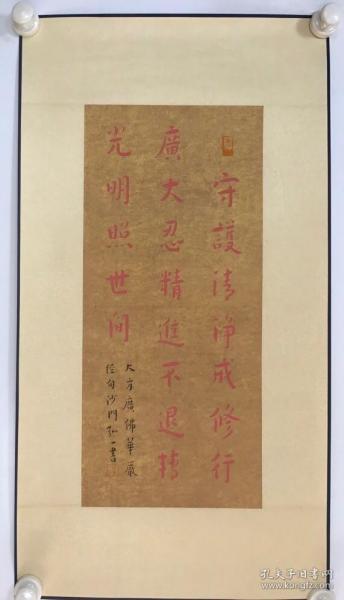 守護清淨成修行
廣大忍精進不退轉
光明照世间
大方廣佛華嚴
经句沙門弘一書
孔夫子旧书网